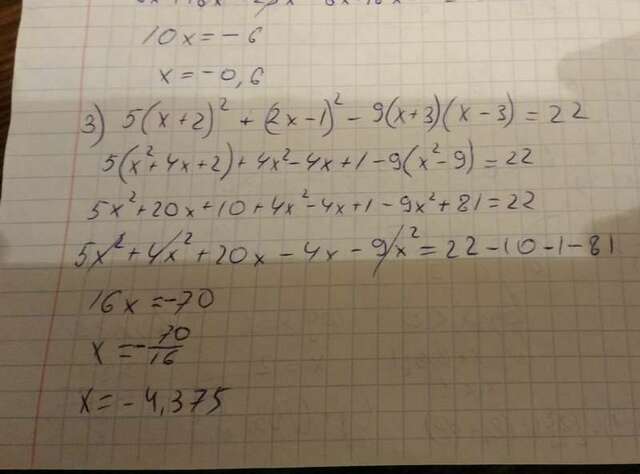 10x = -6
x = -0,6
3) 5(x+2)² + (2x-1)² - 9(x+3)(x-3) = 22
5(x²+4x+2)+4x²-4x+1-9(x²-9)=22
5x²+20x+10+4x²-4x+1-9x²+81=22
5x²+4x²+20x-4x-9x²=22-10-1-81
16x=-70
x=-70/16
x=-4,375